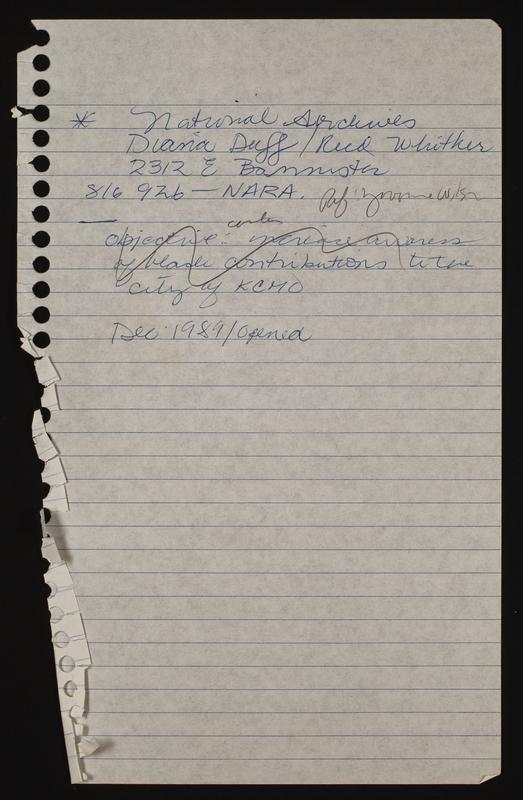 * National Archives
Diana Duff / Reed Whitker
2312 E Bannister
816 926 — NARA. Ref: Yvonne Wilson
center
— objective: increase awareness
of black contributions to the
city of KCMO
Dec 1989/opened